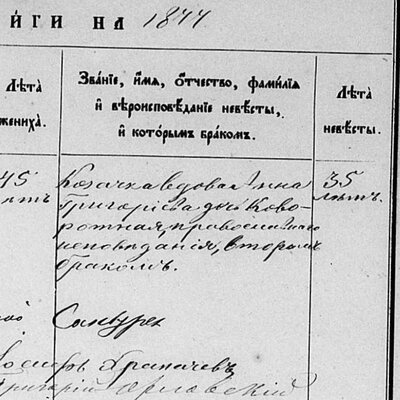 иги на 1877
Лѣта̀ жениха̀.
Зва́ніе, и҆́мѧ, ѻ҆́тчество, фами́лїѧ
и҆ вѣроисповѣ́данїе невѣ́сты,
и҆ кото́рымъ бра́комъ.
Лѣ̑та невѣ́сты.
45
лѣтъ
Козачка вдовая Анна
Григоріева дочь Ково-
ротная, православнаго
исповѣданія, вторымъ
бракомъ.
35
лѣтъ.
Іосифъ
Григорій Орловскій